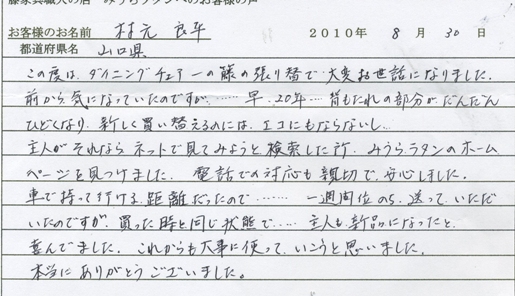 藤家具職人の店 みうらラタンへのお客様の声
お客様のお名前 村元 良平 2010年 8月 30日
都道府県名 山口県
この度は、ダイニングチェアーの籐の張り替で大変お世話になりました。
前から気になっていたのですが、……早、20年…背もたれの部分がだんだん
ひどくなり、新しく買い替えるのには、エコにもならないし…
主人がそれなら、ネットで見てみようと検索した所、みうらラタンのホーム
ページを見つけました。 電話での対応も親切で、安心しました。
車で持って行ける、距離だったので…… 一週間位のち、送っていただ
いたのですが、買った時と同じ状態で…… 主人も、新品になったと、
喜んでました。これからも大事に使っていこうと思いました。
本当にありがとうございました。